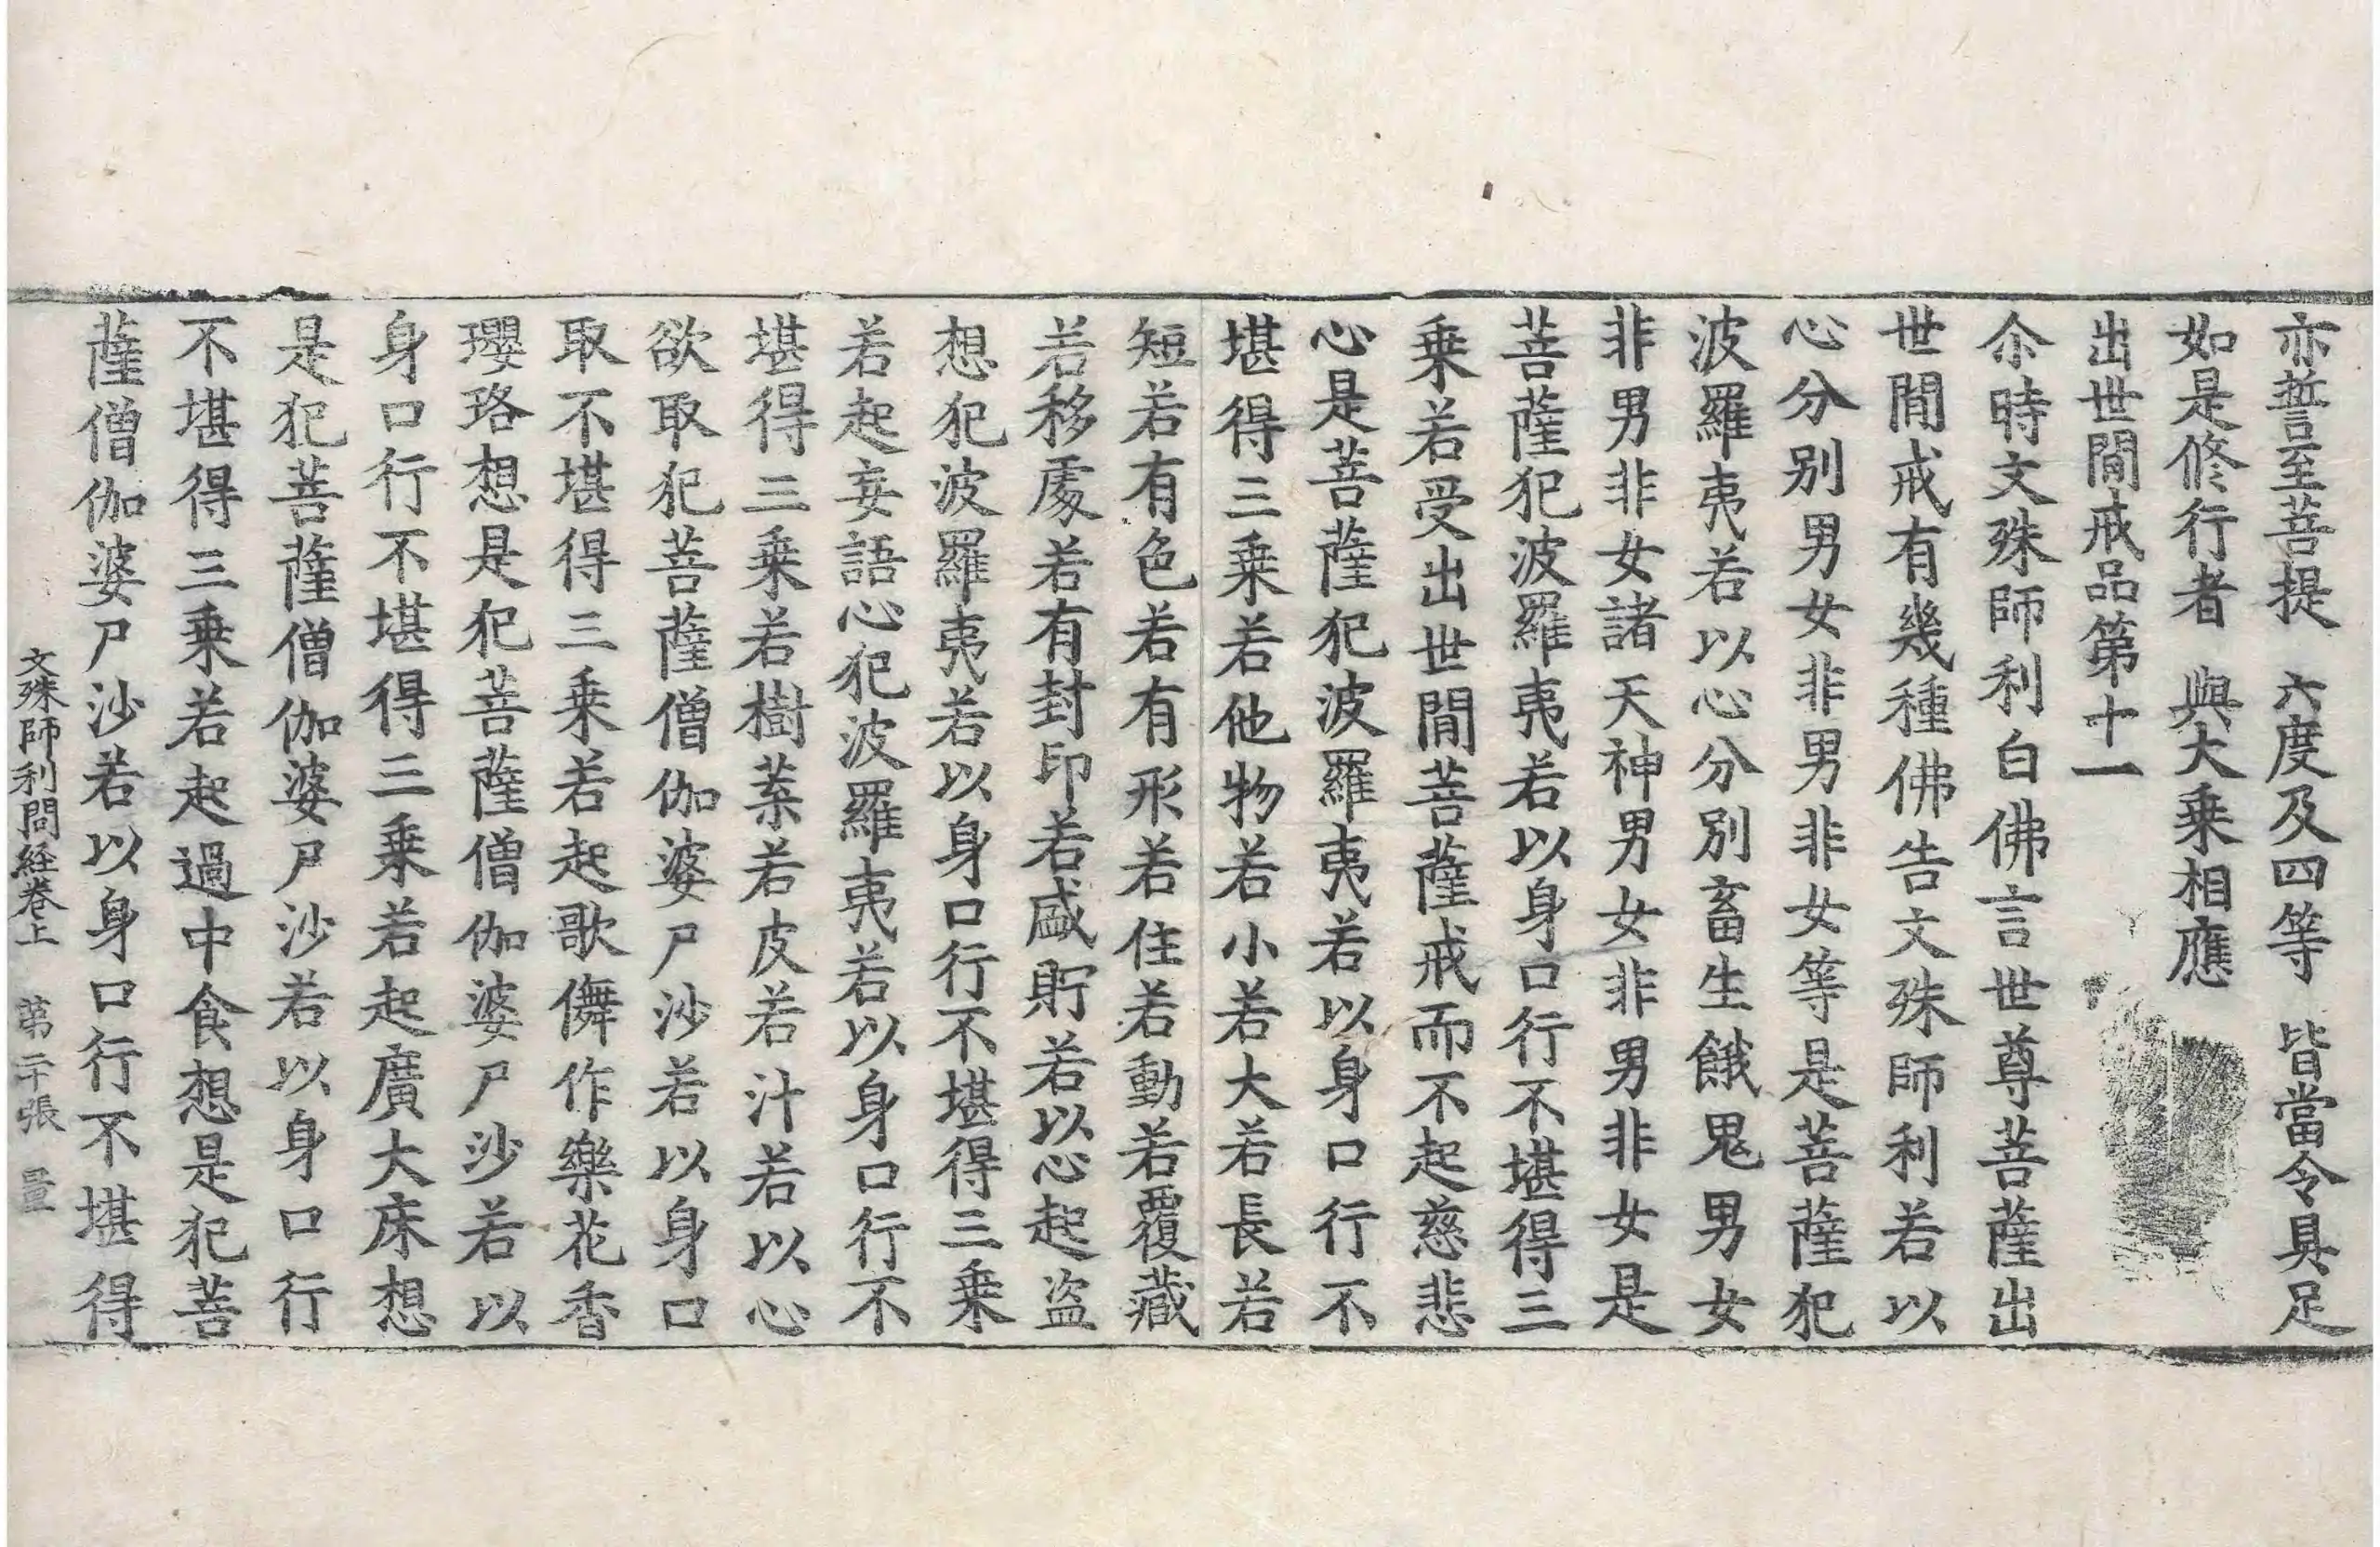 亦誓至菩提　六度及四等　皆當令具足
如是修行者　與大乗相應
出世間戒品第十一
尒時文殊師利白佛言世尊菩薩出
世間戒有幾種佛告文殊師利若以
心分別男女非男非女等是菩薩犯
波羅夷若以心分別畜生餓鬼男女
非男非女諸天神男女非男非女是
菩薩犯波羅夷若以身口行不堪得三
乗若受出世間菩薩戒而不起慈悲
心是菩薩犯波羅夷若以身口行不
堪得三乗若他物若小若大若長若
短若有色若有形若住若動若覆藏
若移處若有封印若盛貯若以心起盜
想犯波羅夷若以身口行不堪得三乗
若起妄語心犯波羅夷若以身口行不
堪得三乗若樹葉若皮若汁若以心
欲取犯菩薩僧伽婆尸沙若以身口
取不堪得三乗若起歌儛作樂花香
瓔珞想是犯菩薩僧伽婆尸沙若以
身口行不堪得三乗若起廣大床想
是犯菩薩僧伽婆尸沙若以身口行
不堪得三乗若起過中食想是犯菩
薩僧伽婆尸沙若以身口行不堪得
文殊師利問経卷上　第二十張　量